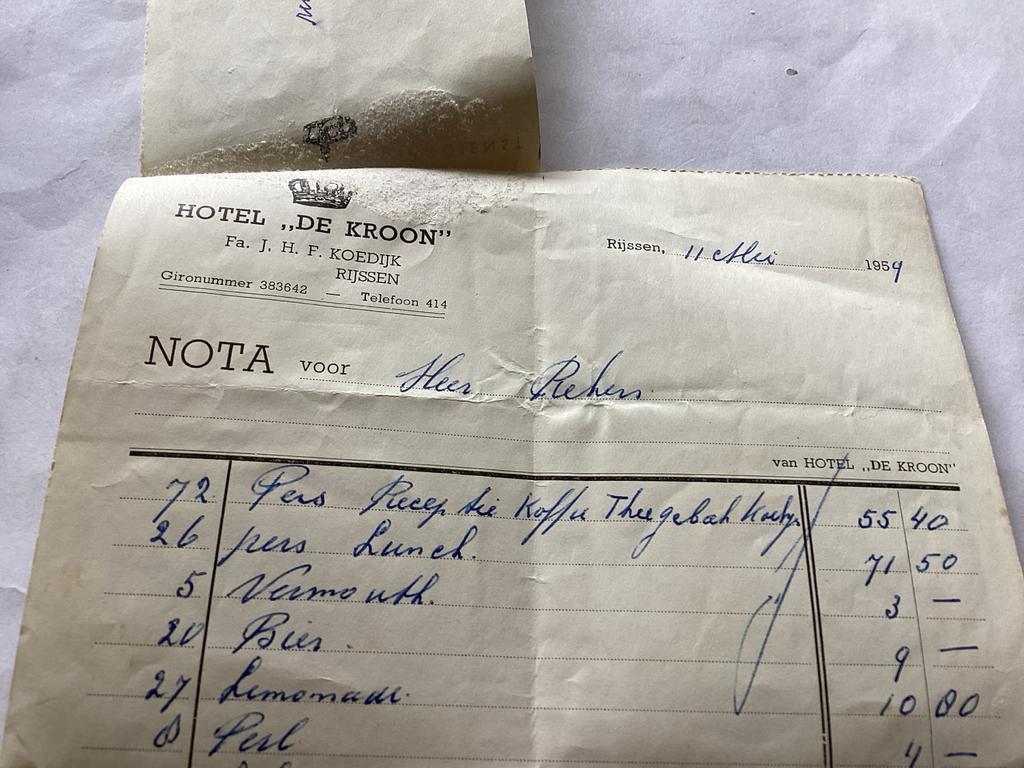 DIENST
HOTEL „DE KROON”
Fa. J. H. F. KOEDIJK
RIJSSEN
Gironummer 383642 — Telefoon 414
Rijssen, 11 Mei 1959
NOTA voor Heer
van HOTEL „DE KROON”
72 Pers Receptie Koffie Theegebak 55 40
26 pers Lunch. 71 50
5 Vermouth. 3 —
20 Bier. 9 —
27 Limonade. 10 80
8 Perl 4 —